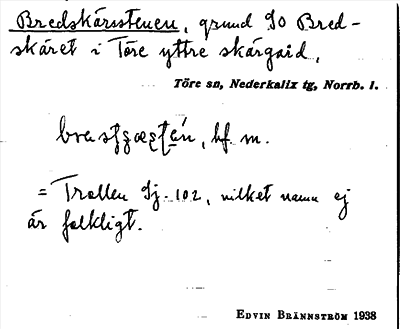 Bredskärsstenen, grund SO Bred-
skäret i Töre yttre skärgård,
Töre sn, Nederkalix tg, Norrb. l.
bf. m.
= Trallen Sj. 102, vilket namn ej
är folkligt.
EDVIN BRÄNNSTRÖM 1938